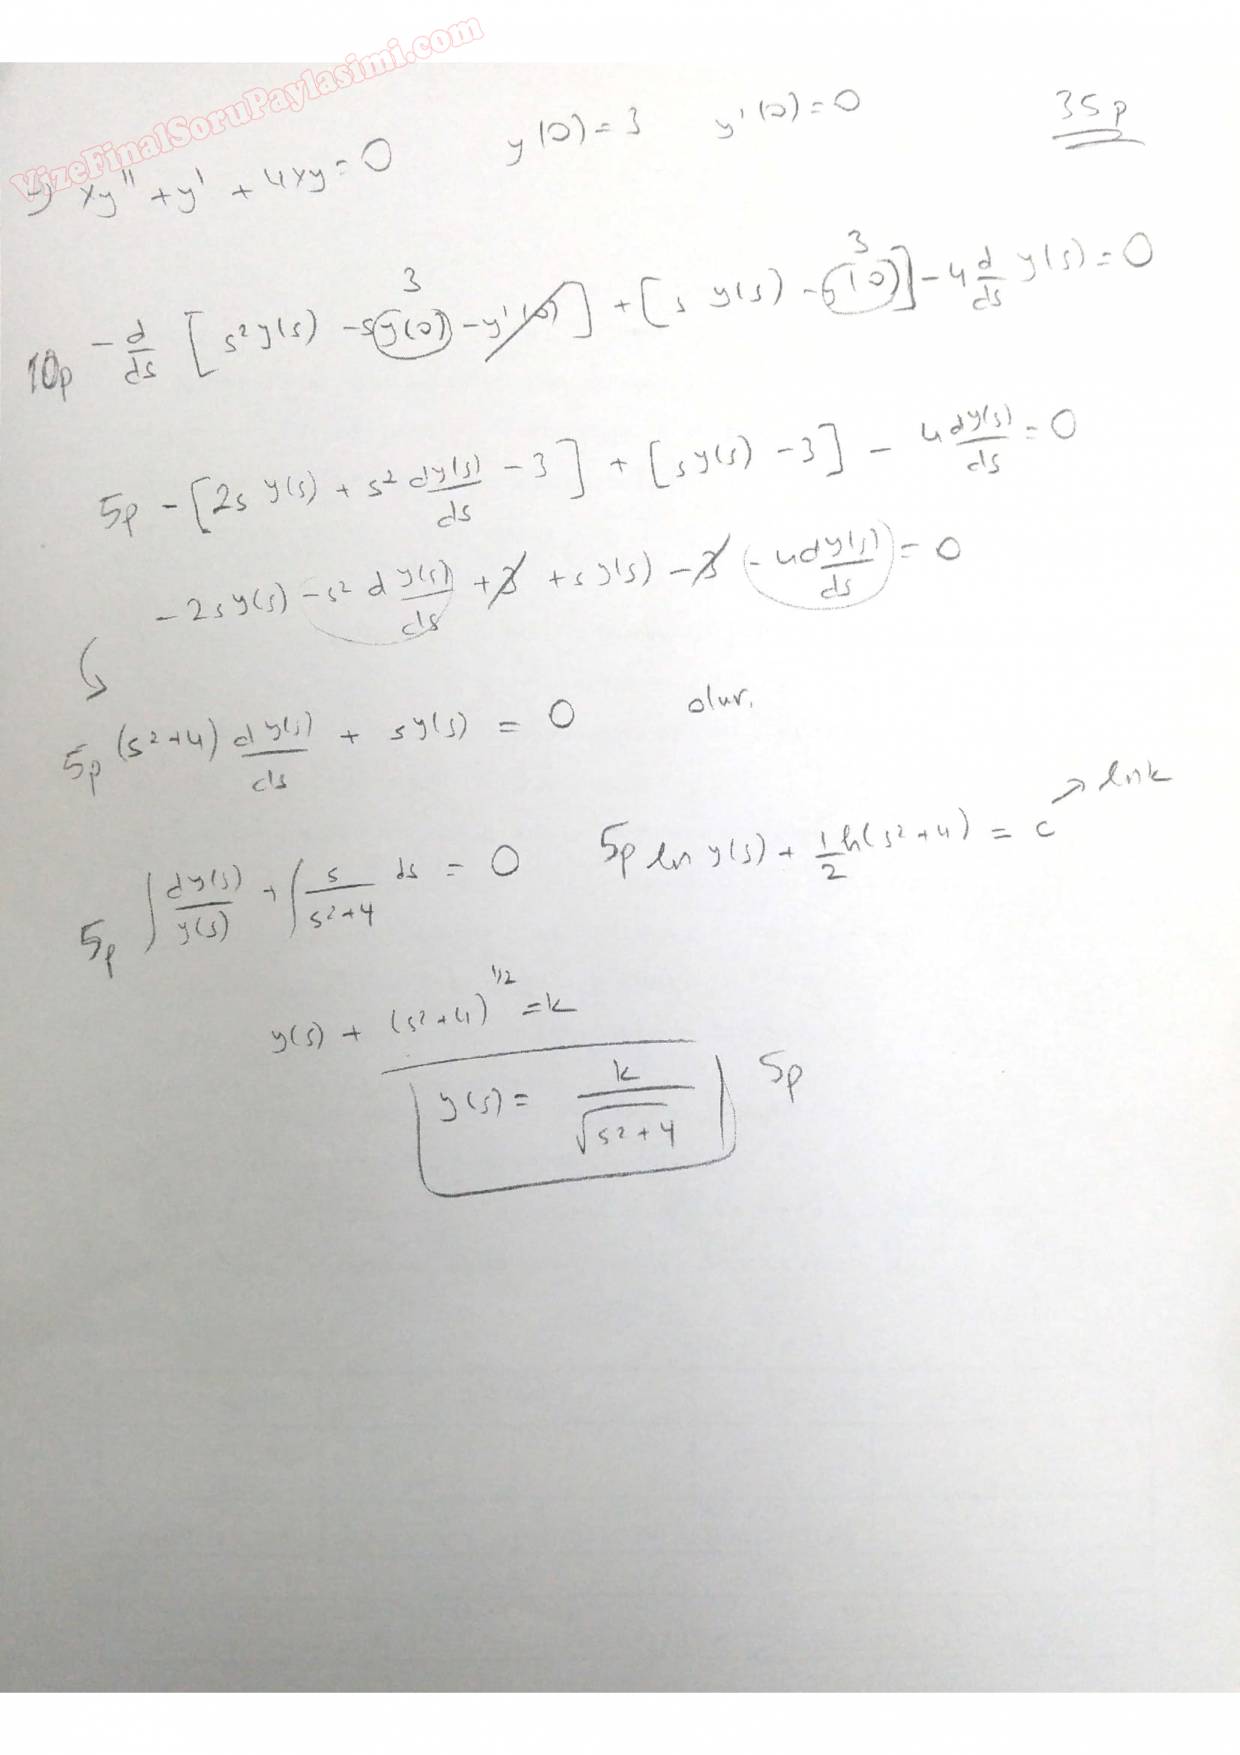 VizeFinalSoruPaylasimi.com
xy'' + y' + 4xy = 0   y(0) = 3   y'(0) = 0   35p
10p -d/ds [s²y(s) - sy(0) - y'(0)] + [s y(s) - y(0)] - 4 d/ds y(s) = 0
3 3
5p -[2s y(s) + s² dy(s)/ds - 3] + [sy(s) - 3] - 4 dy(s)/ds = 0
-2sy(s) - s² dy(s)/ds + 3 + sy(s) - 3 - 4dy(s)/ds = 0
5p (s²+4) dy(s)/ds + sy(s) = 0 olur.
5p ∫ dy(s)/y(s) + ∫ s/(s²+4) ds = 0   5p ln y(s) + 1/2 ln(s²+4) = c → ln k
y(s) + (s²+4)^1/2 = k
y(s) = k/√(s²+4)   5p